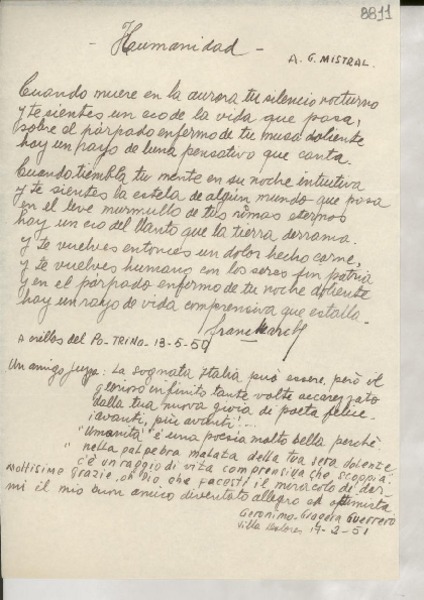 8811
- Humanidad -
A G. MISTRAL.
Cuando muere en la aurora tu silencio nocturno
y te sientes un eco de la vida que pasa,
sobre el párpado enfermo de tu musa doliente
hay un rayo de luna pensativo que canta.
Cuando tiembla tu mente en su noche intuitiva
y te sientes la estela de algún mundo que pasa
en el leve murmullo de tus rimas eternas
hay un eco del llanto que la tierra derrama.
y te vuelves entonces un dolor hecho carne,
y te vuelves humano con los seres sin patria
y en el párpado enfermo de tu noche doliente
hay un rayo de vida comprensiva que estalla.
A orillas del Po-TRINO-13-5-50
Un amigo juzga: La sognata Italia può essere, però il
glorioso infinito tante volte accarezzato
dalla tua nuova gioia di poeta felice
¡avanti, più avanti!...
"Umanità" è una poesia molto bella perchè
"nella palpebra malata della tua sera dolente
c'è un raggio di vita comprensiva che scoppia.
Moltissime grazie, oh Dio che facesti il miracolo di dar-
mi il mio buon amico diventato allegro ed optimista
Geronimo Guerrero
Villa Dolores 14-2-51